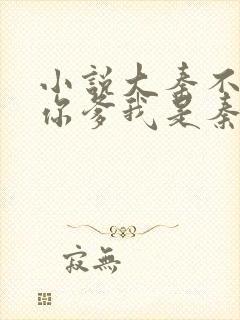 小说大秦不
你爹我是秦
寂無